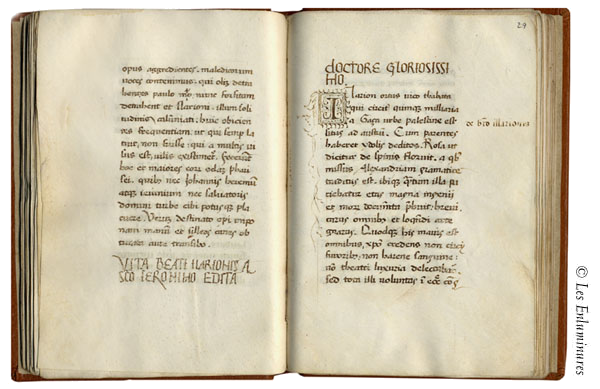 opus aggredientes, maledicorum
uoces contemnimus, qui olim detra
hentes paulo meo, nunc forsitam
detrahent et Ilarioni, illum soli
tudinis calumniati: huic obicien
tes frequentiam, ut qui semper la
tuit, non fuisse: qui a multis ui
sus est, uilis existimetur. Fecerunt
hoc et maiores eorum olim phari
sei, quibus nec Johannis heremum
atque ieiunium nec saluatoris
domini turbe cibi potusque pla
cuere. Verum destinato operi impo
nam manum et
transibo.
VITA BEATI ILARIONIS A
SCO IERONIMO EDITA
29
DOCTORE GLORIOSISSI
MO.
Ilarion ortus uico thabata
qui circit quinque milliaria
a Gaza urbe palestine est
situs ad austrum. Cum parentes
haberet ydolis deditos, Rosa ut
dicitur de spinis floruit. a quibus
missus Alexandriam grammatico
traditus est. ibique quantum illa pa
tiebatur etas magna ingenii
et morum documenta prebuit: breui
carus omnibus et loquendi arte
gnarus. Quodque his maius est
omnibus, Christo credens non circi
furoribus, non harene sanguine:
non theatri luxuria delectabatur.
sed tota illi uoluntas in ecclesie
de beato Illarione
© Les Enluminures